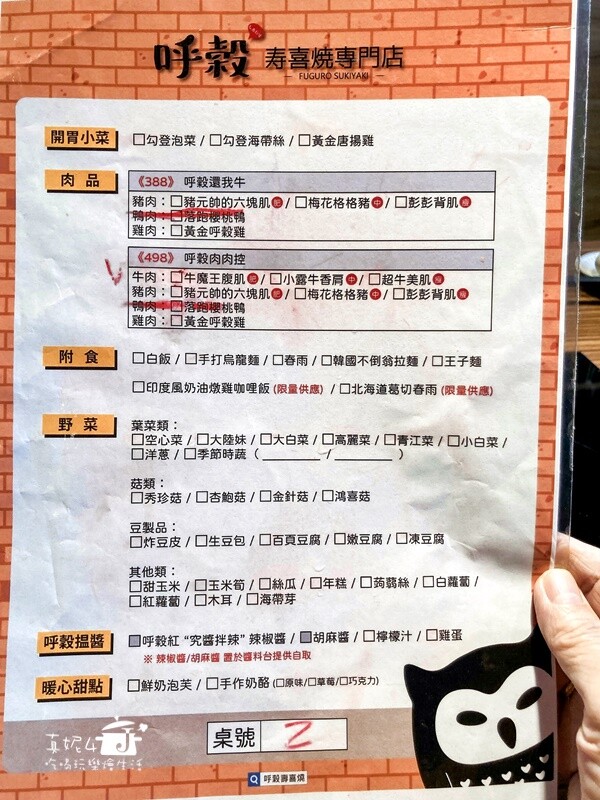 呼穀 寿喜焼専門店
FUGURO SUKIYAKI
開胃小菜 □勾登泡菜 / □勾登海帶絲 / □黃金唐揚雞
肉品
《388》 呼穀還我牛
豬肉：□豬元帥的六塊肌肥 / □梅花格格豬中 / □彭彭背肌瘦
鴨肉：□落跑櫻桃鴨
雞肉：□黃金呼穀雞
《498》 呼穀肉肉控
牛肉：□牛魔王腹肌肥 / □小露牛香肩中 / □超牛美肌瘦
豬肉：□豬元帥的六塊肌肥 / □梅花格格豬中 / □彭彭背肌瘦
鴨肉：□落跑櫻桃鴨
雞肉：□黃金呼穀雞
附食 □白飯 / □手打烏龍麵 / □春雨 / □韓國不倒翁拉麵 / □王子麵
□印度風奶油燉雞咖哩飯 (限量供應) / □北海道葛切春雨 (限量供應)
野菜 葉菜類：
□空心菜 / □大陸妹 / □大白菜 / □高麗菜 / □青江菜 / □小白菜 /
□洋蔥 / □季節時蔬（ ________ / ________ ）
菇類：
□秀珍菇 / □杏鮑菇 / □金針菇 / □鴻喜菇
豆製品：
□炸豆皮 / □生豆包 / □百頁豆腐 / □嫩豆腐 / □凍豆腐
其他類：
□甜玉米 / □玉米筍 / □絲瓜 / □年糕 / □蒟蒻絲 / □白蘿蔔 /
□紅蘿蔔 / □木耳 / □海帶芽
呼穀搵醬 ■呼穀紅 “究醬拌辣” 辣椒醬 / ■胡麻醬 / □檸檬汁 / □雞蛋
※ 辣椒醬/胡麻醬 置於醬料台提供自取
暖心甜點 □鮮奶泡芙 / □手作奶酪 (□原味/□草莓/□巧克力)
桌號 2
真妮4
吃喝玩樂繪生活
呼穀壽喜燒